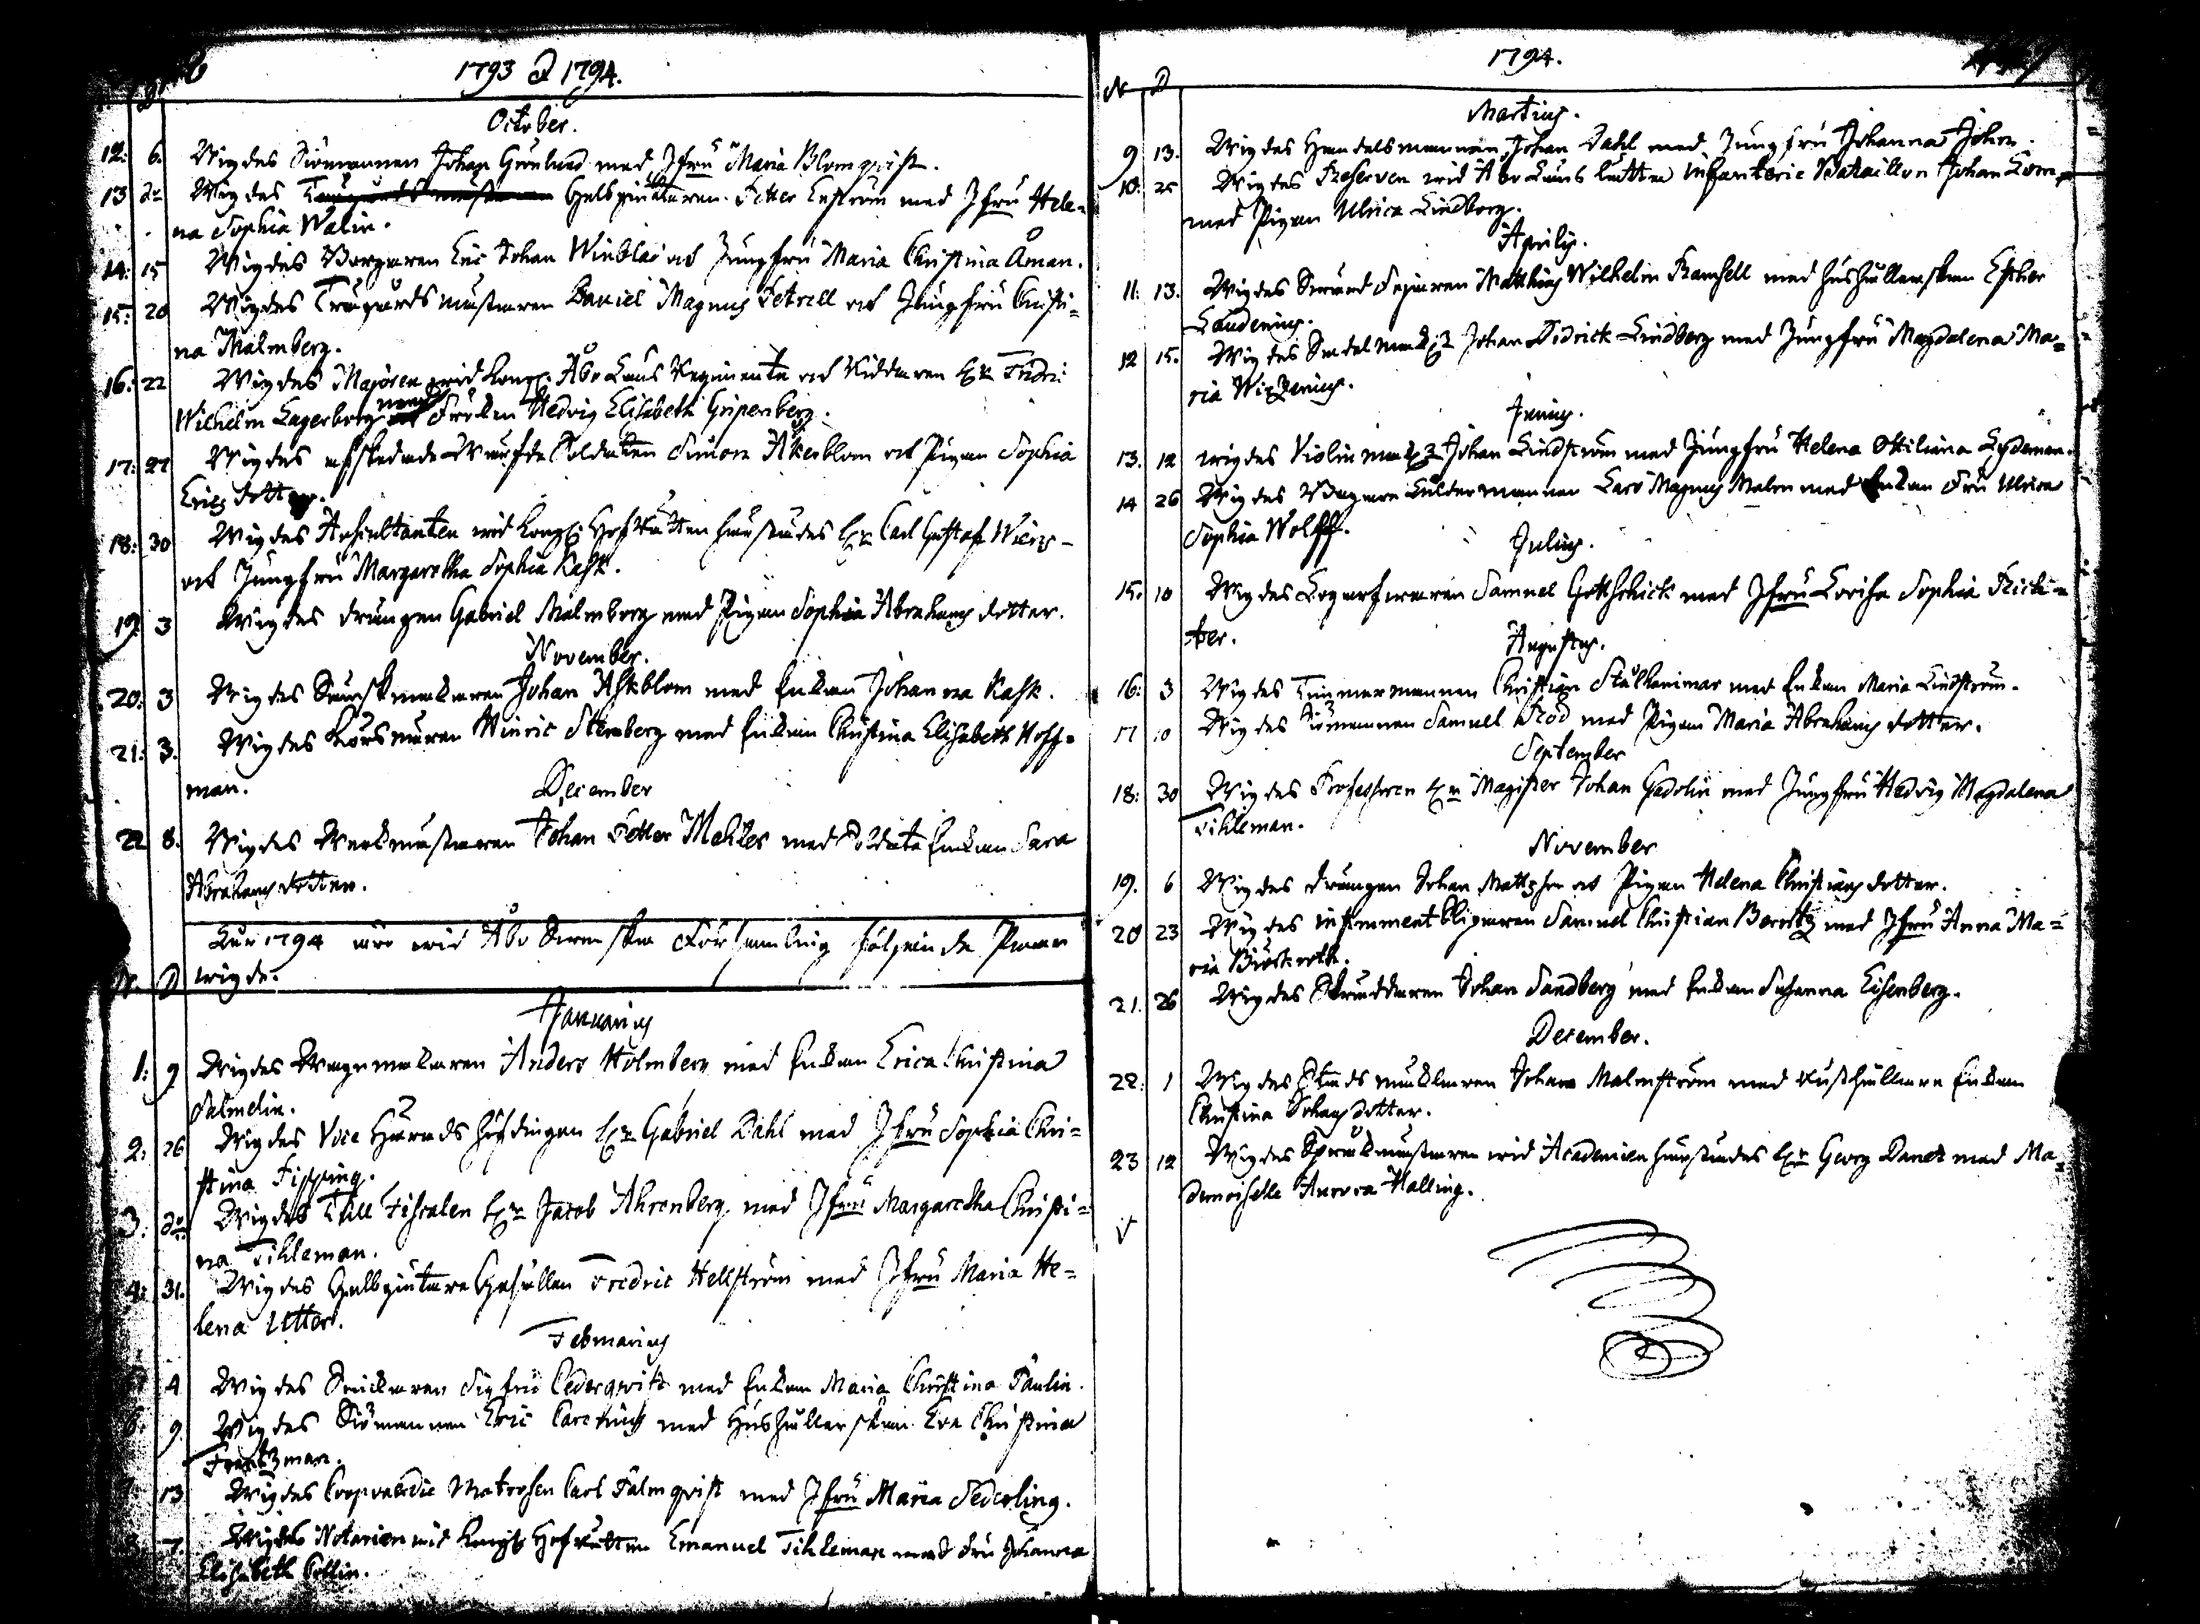 1793 & 1794.
October.
12: 6. Wigdes Siömannen Johan Grönlund med Jfru Maria Blomqvist.
13 do Wigdes Gelbgiutaren Petter Enström med Jfru Hele=
na Sophia Walin.
14: 15 Wigdes Borgaren Eric Johan Winblad och Jungfru Maria Christina Åman.
15: 20 Wigdes Trägårds mästaren Daniel Magnus Petrell och Jungfru Christi=
na Malmberg.
16: 22 Wigdes Majoren wid Kongl. Åbo Läns Regimente och Riddaren Hr Fridric
Wilhelm Lagerborg med Fröken Hedvig Elisabeth Gripenberg.
17: 27 Wigdes afskedade Soldaten Simon Åkerblom och Pigan Sophia
Erics dotter.
18: 30 Wigdes Auscultanten wid Kongl. Hofrätten härstädes Hr Carl Gustaf
och Jungfru Margaretha Sophia Kask.
19: 3 Wigdes Drängen Gabriel Malmberg med Pigan Sophia Abrahams dotter.
November.
20: 3 Wigdes Johan Askblom med Enkan Johanna Kask.
21: 3. Wigdes Henric Stenberg med Enkan Christina Elisabeth Hoff=
man.
December
22 8. Wigdes Werkmästaren Johan Petter med Soldate Enkan Sara
Abrahams dotter.
Åhr 1794 äro wid Åbo Swenska Församling följande Paar
wigde.
N. D
Januarius
1: 9 Wigdes Wagnmakaren Anders Holmberg med Enkan Erica Christina
Palmelin.
2: 26 Wigdes Vice Härads höfdingen Hr Gabriel Dahl med Jfru Sophia Chri=
stina Tipping.
3: do Wigdes Tull Fiscalen Hr Jacob Ahrenberg med Jfru Margaretha Christi=
na Tihleman.
4: 31. Wigdes Gelbgiutare Gesällen Fredric Hellström med Jfru Maria He=
lena Utter.
Februarius
4 Wigdes Snickaren Sigfrid Cederqvist med Enkan Maria Christina Paulin.
6. 9. Wigdes Siömannen Eric med Hushållerskan Eva Christina
Frantzman.
13 Wigdes Coopvaerdie Matrosen Carl Palmqvist med Jfru Maria Sederling.
7 Wigdes Notarien wid Kongl. Hofrätten Emanuel Tihleman med Fru Johanna
Elisabeth
1794.
N D
Martius.
9 13. Wigdes Handelsmannen Johan Dahl med Jungfru Johanna
10: 25 Wigdes wid Åbo Läns Lätta infanterie Bataillon Johan
med Pigan Ulrica Lindborg.
Aprilis.
11: 13. Wigdes Matthias Wilhelm Ramsell med Hushållerskan Esther
Laudenius.
12 15. Wigdes Sadelmak: Johan Didrick Lindberg med Jungfru Magdalena Ma=
ria
Junius.
13. 12 wigdes Violin mak: Johan Lindström med Jungfru Helena Ottiliana Lydeman.
14 26 Wigdes Bagare Åldermannen Lars Magnus Malm med Enkan Fru Ulrica
Sophia Wolff.
Julius.
15. 10 Wigdes Samuel Gottskick med Jfru Lovisa Sophia Rich=
ter.
Augustus.
16: 3 Wigdes Timmermannen Christian med Enkan Maria Lindström.
17 10 Wigdes Siömannen Samuel Röd med Pigan Maria Abrahams dotter.
September
18: 30 Wigdes Professoren Hr Magister Johan Gadolin med Jungfru Hedvig Magdalena
Tihleman.
November
19. 6 Wigdes Drängen Johan Mattsson och Pigan Helena Christians dotter.
20 23 Wigdes instrument Samuel Christian med Jfru Anna Ma=
ria
21. 26 Wigdes Skräddaren Johan Sandberg med Enkan Susanna Eisenberg.
December.
22: 1 Wigdes Stads mäklaren Johan Malmström med Enkan
Christina Johans dotter.
23 12 Wigdes Språkmästaren wid Academien härstädes Hr Georg Danet med Ma=
demoiselle Aurora Halling.